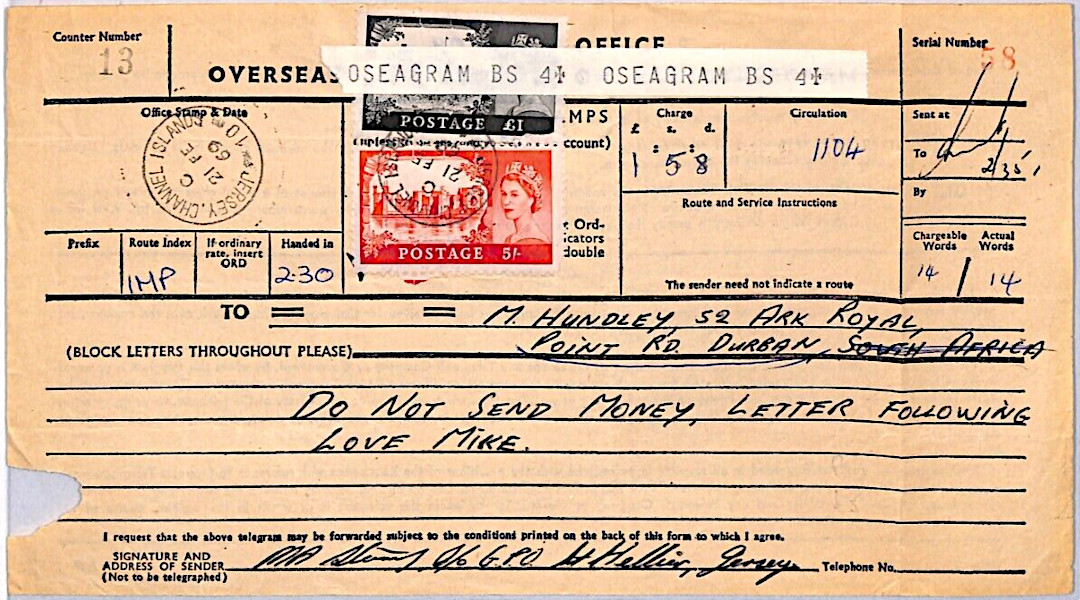 Counter Number
13
OFFICE
OVERSEAS
OSEAGRAM BS 4✠ OSEAGRAM BS 4✠
Serial Number
58
Office Stamp & Date
JERSEY. CHANNEL ISLANDS
10
C
21 FE
69
POSTAGE £1
AMPS
ccount)
C
21 FE
POSTAGE 5/-
Ord-
icators
double
Charge
£ s. d.
1 : 5 : 8
Circulation
1104
Route and Service Instructions
The sender need not indicate a route
Sent at
To
By
Prefix
Route Index
IMP
If ordinary
rate, insert
ORD
Handed in
2.30
Chargeable
Words
14
/
Actual
Words
14
TO = = M. HUNDLEY, 52 ARK ROYAL,
(BLOCK LETTERS THROUGHOUT PLEASE) POINT RD. DURBAN, SOUTH AFRICA
DO NOT SEND MONEY, LETTER FOLLOWING
LOVE MIKE.
I request that the above telegram may be forwarded subject to the conditions printed on the back of this form to which I agree.
SIGNATURE AND
ADDRESS OF SENDER c/o G.P.O. St Hellier, Jersey
(Not to be telegraphed)
Telephone No.